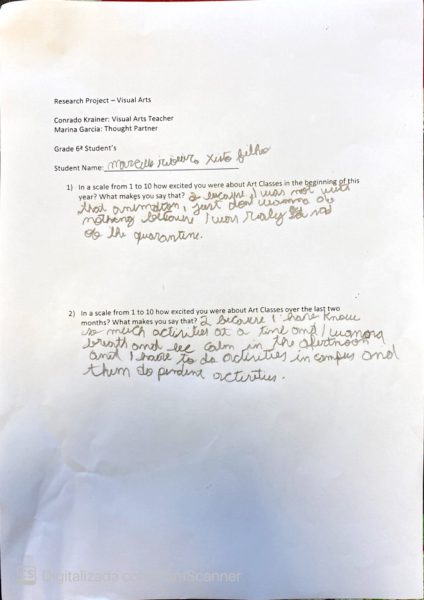 Research Project – Visual Arts
Conrado Krainer: Visual Arts Teacher
Marina Garcia: Thought Partner
Grade 6ª Student's
Student Name: marcello ribeiro Xisto filho
1) In a scale from 1 to 10 how excited you were about Art Classes in the beginning of this
year? What makes you say that? 2 because I was not with
that animation, I just don wanna do
nothing because I was realy sad
of the quarantine.
2) In a scale from 1 to 10 how excited you were about Art Classes over the last two
months? What makes you say that? 2 because I have know
so much activities at a time and I wanna
breath and calm in the afertnoon
and I have to do activities in campus and
them do pendent activities.
CS Digitalizada com CamScanner